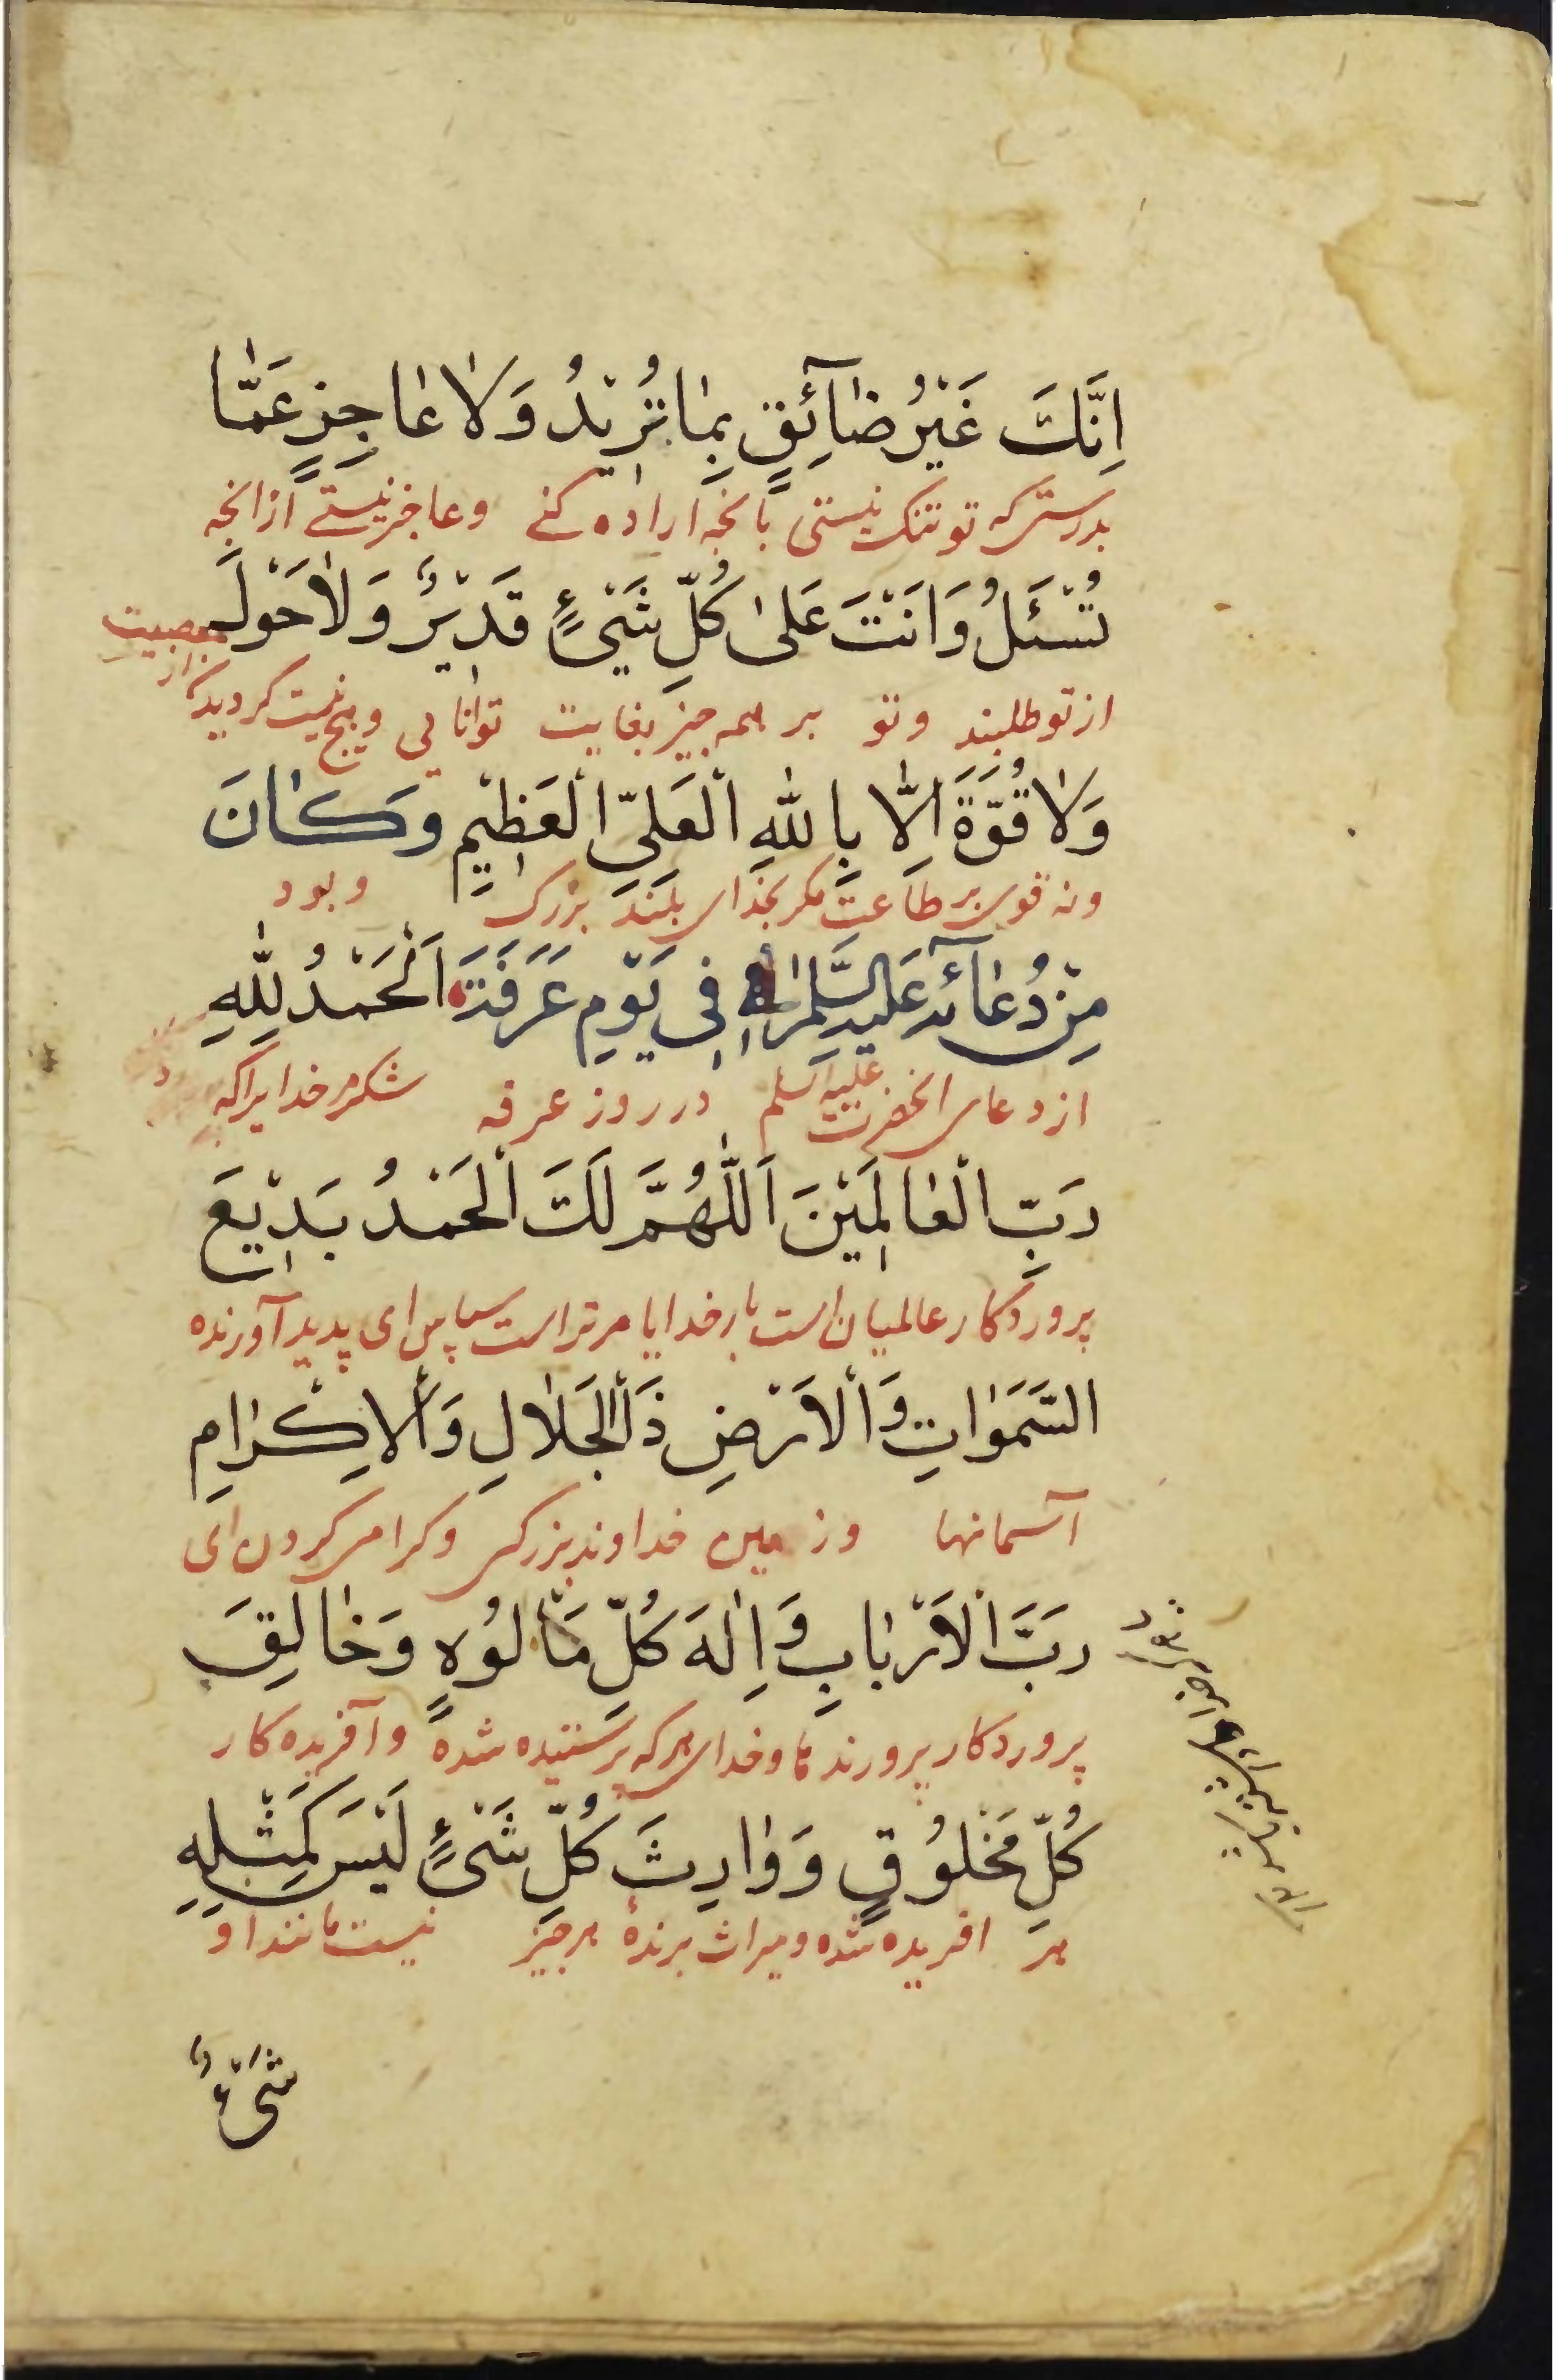 اِنَّكَ غَيْرُ ضٰٓائِقٍ بِمٰا تُرٖيْدُ وَلٰا عٰاجِزٍ عَمّٰا
بدرستی که تو تنک نیستی بانچه اراده کنے وعاجز نیستے ازانچه
تُسْئَلُ وَاَنْتَ عَلىٰ كُلِّ شَيْءٍ قَدٖيْرٌ وَلٰاحَوْلَ
ازتو طلبند وتو بر همه چیز بغایت توانایی وهیچ نیست کردیدن از معصیت
وَلٰا قُوَّةَ اِلّٰا بِاللّٰهِ الْعَلِيِّ الْعَظٖيْمِ وَكٰانَ
ونه قوت بر طاعت مکر بخدای بلند بزرک وبود
مِنْ دُعٰٓائِهٖ عَلَيْهِ السَّلٰمُ فٖى يَوْمِ عَرَفَةَ اَلْحَمْدُ لِلّٰهِ
ازدعای انحضرت علیه السلم درروز عرفه شکر مر خدایراکه
رَبِّ الْعٰالَمٖيْنَ اَللّٰهُمَّ لَكَ الْحَمْدُ بَدٖيْعَ
پروردکار عالمیان است بارخدایا مرتراست سپاس ای پدید آورنده
السَّمَوٰاتِ وَالْاَرْضِ ذَا الْجَلٰالِ وَالْاِكْرٰامِ
آسمانها وزمین خداوند بزرکی وکرامی کردن ای
رَبَّ الْاَرْبٰابِ وَاِلٰهَ كُلِّ مَاْلُوْهٍ وَخٰالِقَ
پروردکار پرورندها وخدای هرکه پرستیده شده وآفریده کار
كُلِّ مَخْلُوْقٍ وَوٰارِثَ كُلِّ شَيْءٍ لَيْسَ كَمِثْلِهٖ
هر افریده شده ومیراث برندهٔ هرچیز نیست مانند او
شَيْءٌ